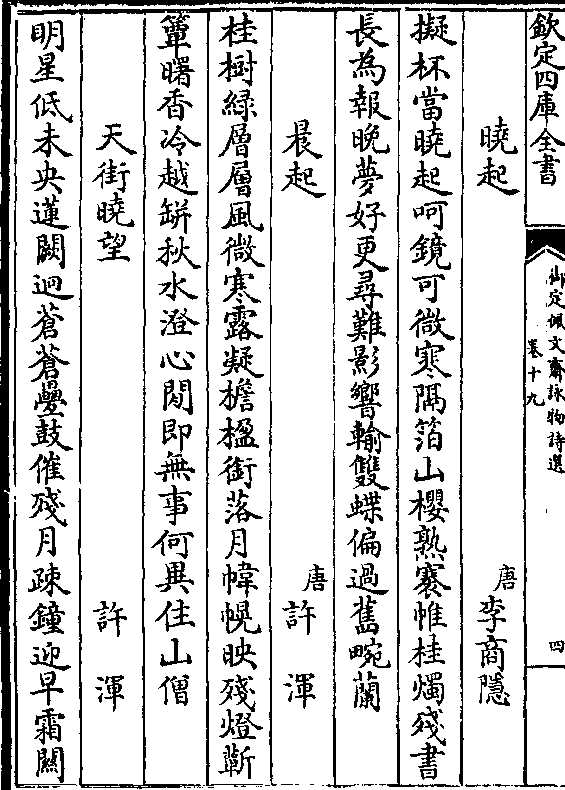 欽定四庫全書
御定佩文齋詠物詩選
卷十九
四
曉起
唐李商隱
擬杯當曉起呵鏡可微寒隔箔山櫻熟褰帷桂燭殘書
長為報晚夢好更尋難影響輸雙蝶偏過舊畹蘭
晨起
唐許渾
桂樹綠層層風微寒露凝檐楹銜落月幃幌映殘燈蘄
簟曙香冷越缾秋水澄心閒即無事何異住山僧
天街曉望
許渾
明星低未央蓮闕迥蒼蒼疊鼓催殘月疎鐘迎早霜關